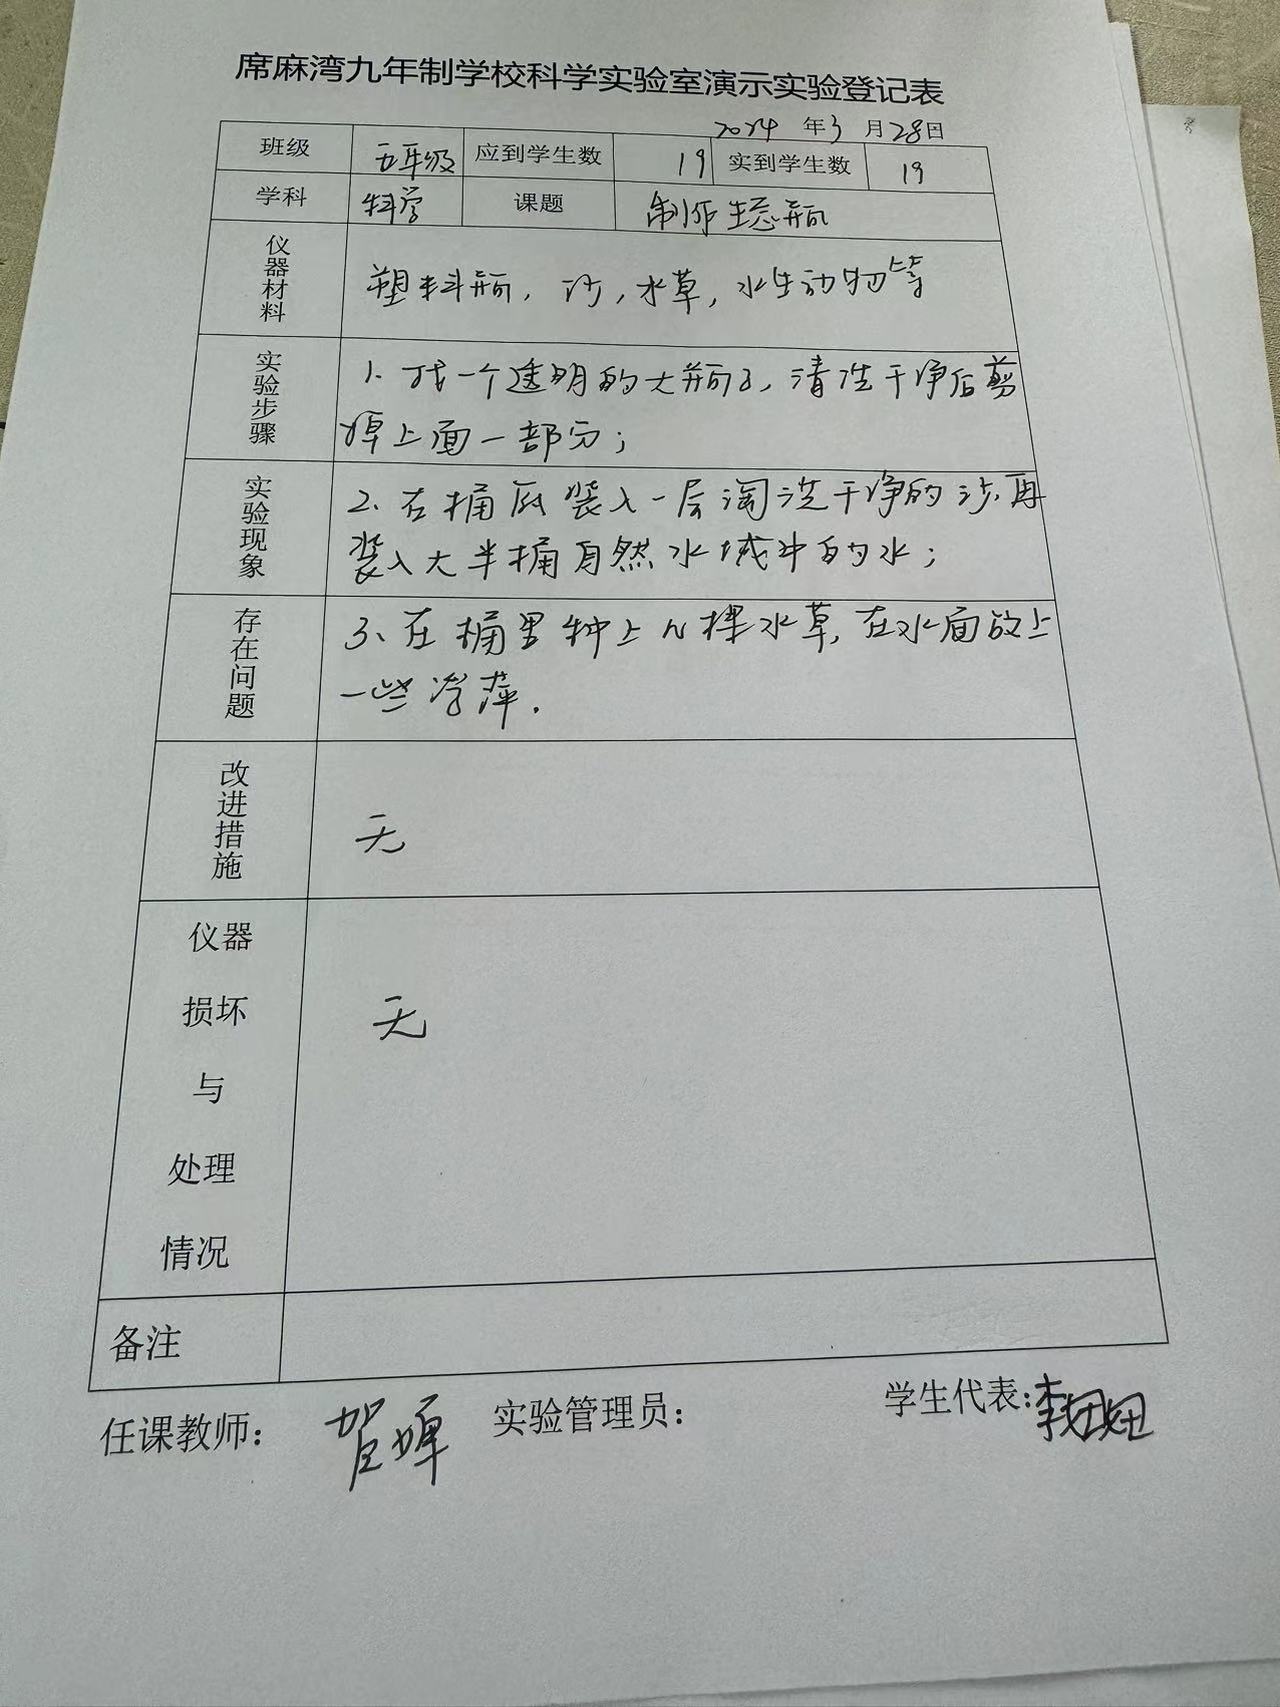 席麻湾九年制学校科学实验室演示实验登记表
2024 年3 月28日
班级 五年级 应到学生数 19 实到学生数 19
学科 科学 课题 制作生态瓶
仪器材料 塑料瓶，沙，水草，水生动物等
实验步骤 1、找一个透明的大瓶子，清洗干净后剪
掉上面一部分；
实验现象 2、在桶底装入一层淘洗干净的沙，再
装入大半桶自然水域中的水；
存在问题 3、在桶里种上几棵水草，在水面放上
一些浮萍．
改进措施 无
仪器
损坏 无
与
处理
情况
备注
任课教师： 贺婷 实验管理员： 学生代表：李